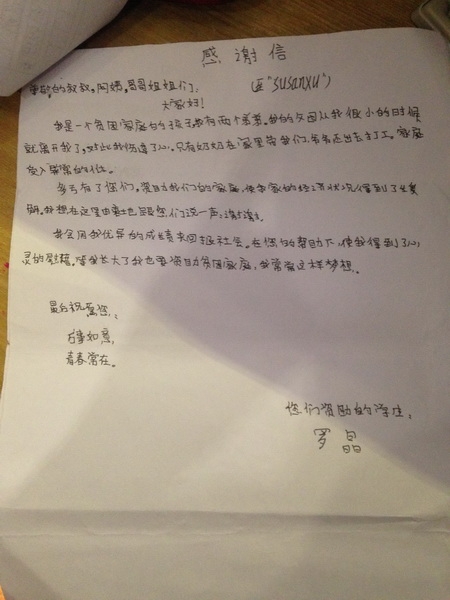 感谢信
尊敬的叔叔,阿姨,哥哥姐姐们: (至"susanxu")
大家好!
我是一个贫困家庭的孩子,我有两个 我的父因从我很小的时候
就离开我了,对此我伤透了心,只有奶奶在家里带我们,爷爷还出去打工,家庭
收入 常的低。
多亏有了你们,资助我们的家庭,使我家的经济状况得到了
明,我想在这里 您们说一声:谢谢!
我会用我优异的成绩来回报社会。在您的帮助下,使我得到了心
灵的慰藉。等我长大了我也要资助贫困家庭,我常有这样梦想。
最后祝愿您:
万事如意,
青春常在。
您们资助的学生:
罗晶